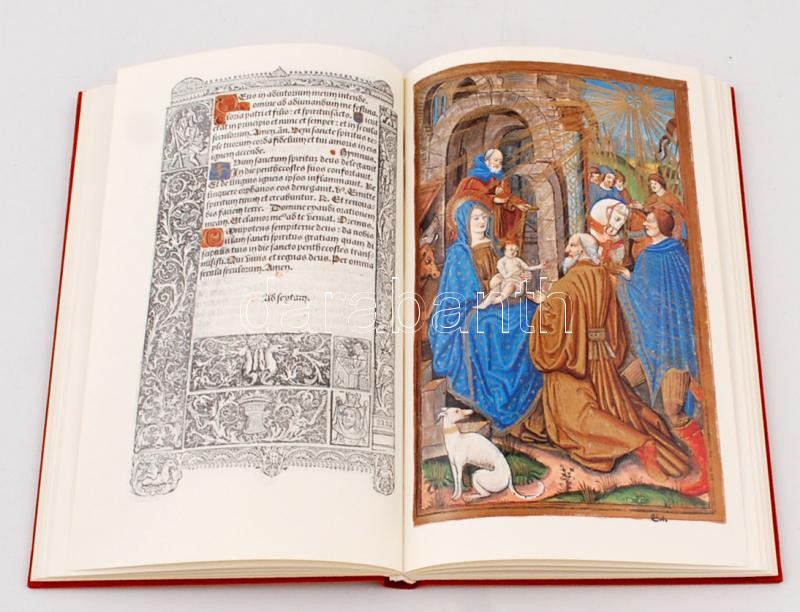 Deus in adiutorium meum intende.
Domine ad adiuuandum me festina.
Gloria patri et filio: et spirituisancto. Sicut
erat in principio et nunc et semper: et in secula
seculorum. Amen. añ. Veni sancte spiritus
reple tuorum corda fidelium et tui amoris in eis
ignem accende. Hymnus.
Dum sanctum spiritus deus delegauit
In die penthecostes suos confortauit.
Et de linguis igneis ipsos inflammauit. Re
linquere orphanos eos denegauit. V. Emitte
spiritum tuum et creabuntur. R. Et renoua
bis faciem terre. Domine exaudi orationem
meam. Et clamor me⁹ ad te veniat. Oremus.
Omnipotens sempiterne deus: da nobis
illam sancti spiritus gratiam quam di
scipulis tuis in die sancto penthecostes trans
misisti. Qui viuis et regnas deus. Per omnia
secula seculorum. Amen.
Ad sextam.
darabanth